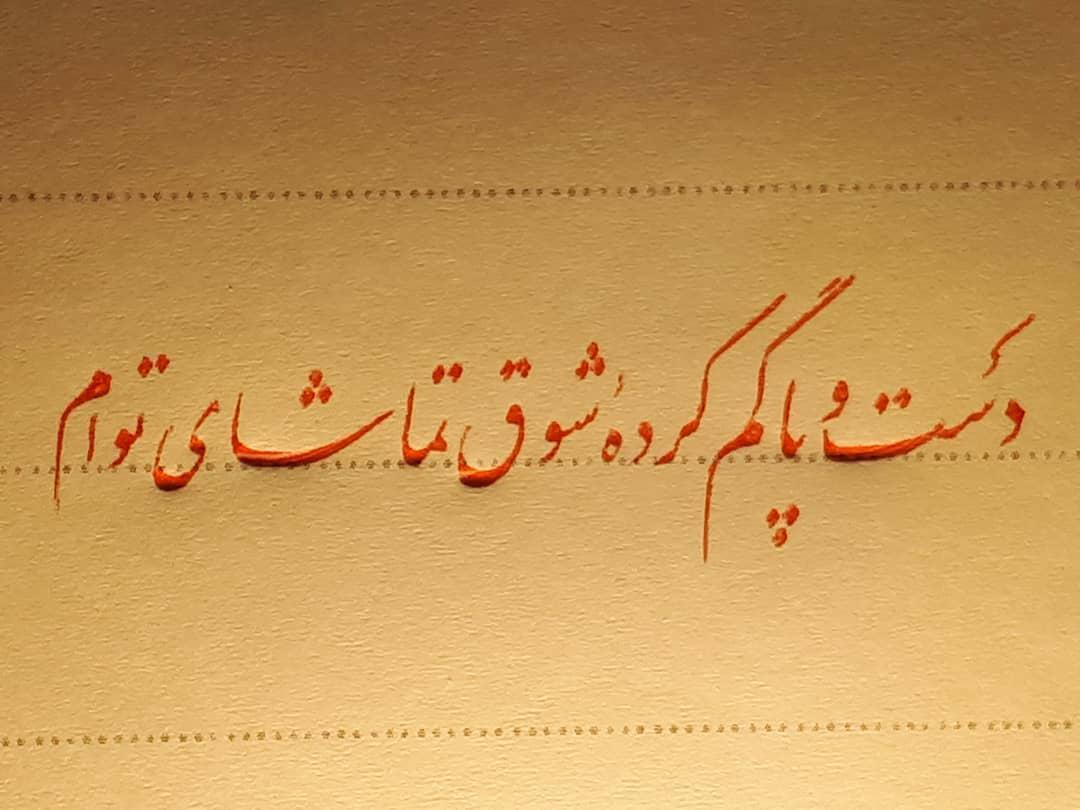 دست و پا گم کردهٔ شوق تماشای توام